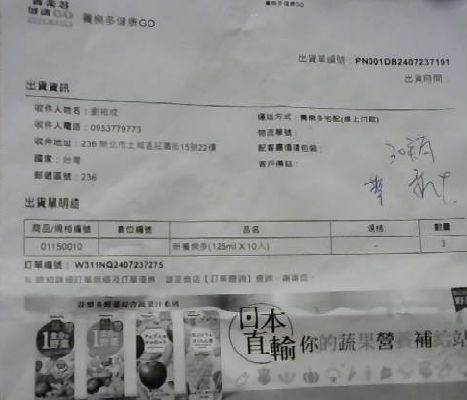 養樂多健康GO
養樂多健康GO
出貨單編號：PN001DB2407237191
出貨時間：
出貨資訊
收件人姓名：劉
收件人電話：0953779773
收件地址：236 新北市土城區莊園街15號22樓
國家：台灣
郵遞區號：236
運送方式：養樂多宅配(線上付款)
物流單號：
配客嚴選環包裝：
客戶備註：
出貨單明細
商品/規格編號 倉位編號 品名 規格 數量
01150010 新養樂多(125ml X 10入) - 3
訂單編號：W311NQ2407237275
日本
直輸
你的蔬果營養補給站